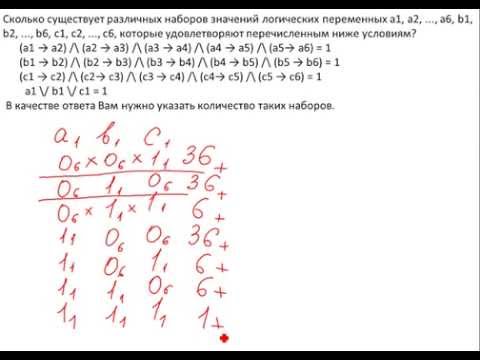 Сколько существует различных наборов значений логических переменных a1, a2, ..., a6, b1,
b2, ..., b6, c1, c2, ..., c6, которые удовлетворяют перечисленным ниже условиям?
(a1 → a2) /\ (a2 → a3) /\ (a3 → a4) /\ (a4 → a5) /\ (a5→ a6) = 1
(b1 → b2) /\ (b2 → b3) /\ (b3 → b4) /\ (b4 → b5) /\ (b5 → b6) = 1
(c1 → c2) /\ (c2→ c3) /\ (c3 → c4) /\ (c4→ c5) /\ (c5 → c6) = 1
a1 \/ b1 \/ c1 = 1
В качестве ответа Вам нужно указать количество таких наборов.
a₁ b₁ c₁
0₆ × 0₆ × 1₁ 36 +
0₆ 1₁ 0₆ 36 +
0₆ × 1₁ × 1₁ 6 +
1₁ 0₆ 0₆ 36 +
1₁ 0₆ 1₁ 6 +
1₁ 1₁ 0₆ 6 +
1₁ 1₁ 1₁ 1 +